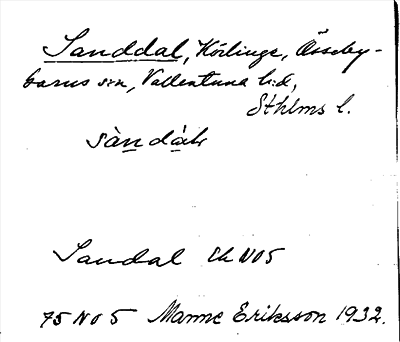 Sanddal, Körlinge, Össeby-
garns sn, Vallentuna h:d,
Sthlms l.
sàndá̱l
Sandal Ek NO5
75 NO 5 Manne Eriksson 1932.